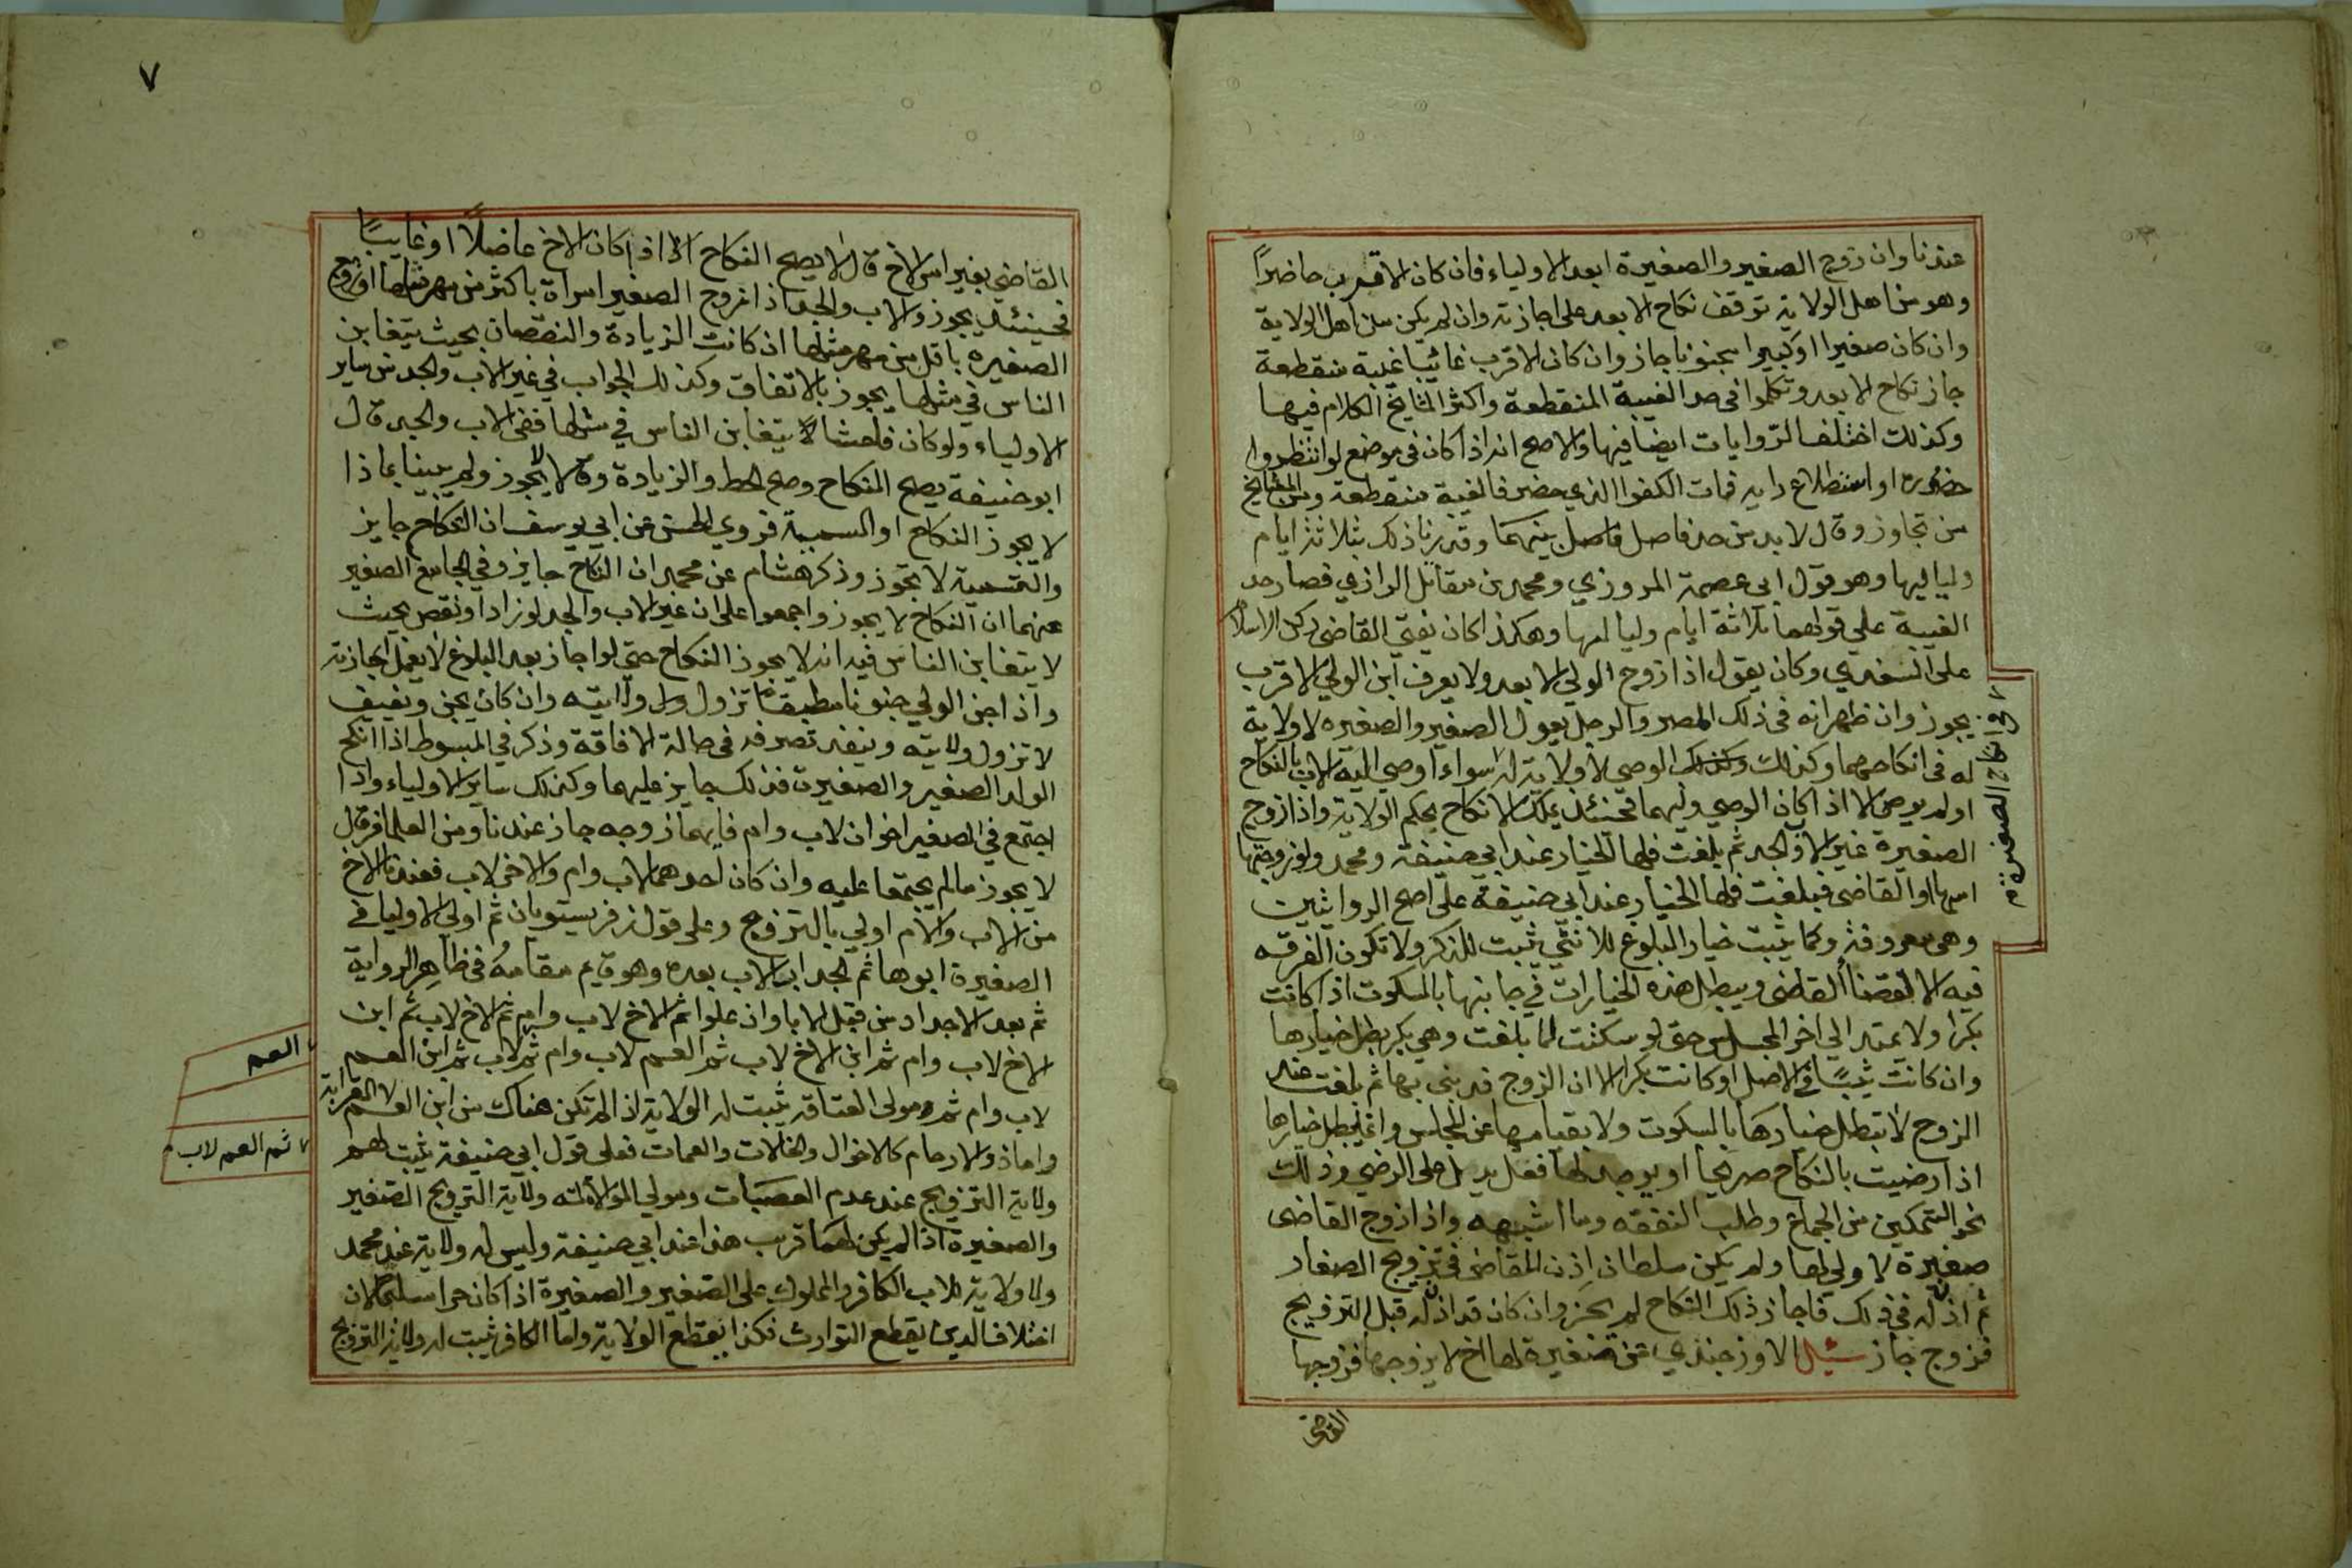 عندنا وان زوج الصغير والصغيرة ابعد الاولياء فان كان الاقرب حاضراً
وهو من اهل الولاية توقف نكاح الابعد على اجازته وان لم يكن من اهل الولاية
وان كان صغيرا او كبيرا مجنونا جاز وان كان الاقرب غائبا غيبة منقطعة
جاز نكاح الابعد وتكلموا فى حد الغيبة المنقطعة واكثر المشايخ الكلام فيها
وكذلك اختلف الروايات ايضا فيها والاصح انه اذا كان فى موضع لو انتظروا
حضوره او استطلاع رايه فات الكفوا الذي حضر فالغيبة منقطعة ومن المشايخ
من تجاوز وقال لا بد من حد فاصل بينهما وقدرنا ذلك بثلاثة ايام
ولياليها وهو قول ابى عصمة المروزي ومحمد بن مقاتل الرازي فصار حد
الغيبة على قولهما ثلاثة ايام ولياليها وهكذا كان يفتي القاضى ركن الاسلام
على السغدي وكان يقول اذا زوج الولي الابعد ولا يعرف اين الولي الاقرب
يجوز وان ظهر انه فى ذلك المصر والرجل يعول الصغير والصغيره لا ولاية
له فى انكاحهما وكذلك الوصي لا ولاية له سواء اوصي اليه الاب بالنكاح
او لم يوص الا اذا كان الوصي وليهما فحينئذ يملك الانكاح بحكم الولاية واذا زوج
الصغيرة غير الاب والجد ثم بلغت فلها الخيار عند ابي حنيفة ومحمد ولو زوجتها
امها او القاضى فبلغت فلها الخيار عند ابي حنيفة على اصح الروايتين
وهى معروفة وكما يثبت خيار البلوغ للانثي يثبت للذكر ولا تكون الفرقه
فيه الا بقضاء القاضى ويبطل هذه الخيارات في جانبها بالسكوت اذا كانت
بكرا ولا يمتد الي اخر المجلس حتى لو سكتت لما بلغت وهي بكر بطل خيارها
وان كانت ثيبًا فى الاصل او كانت بكرا الا ان الزوج قد بنى بها ثم بلغت عند
الزوج لا تبطل خيارها بالسكوت ولا بقيامها عن المجلس وانما يبطل خيارها
اذا رضيت بالنكاح صريحا او يوجد لها فعل يدل على الرضى وذلك
نحو التمكين من الجماع وطلب النفقه وما اشبهه واذا زوج القاضى
صغيرة لا ولي لها ولم يكن سلطان اذن للقاضى فى تزويج الصغار
ثم اذن له فى ذلك فاجاز ذلك النكاح لم يجز وان كان قد اذن له قبل التزويج
فزوج جاز سئل الاوزجندي عن صغيرة لها اخ لا يزوجها فزوجها
القاضى
٧
القاضي بغير امر الاخ قال لا يصح النكاح الا اذا كان الاخ عاضلًا او غايبًا
فحينئذ يجوز والاب والجد اذا زوج الصغير امراة باكثر من مهر مثلها او زوج
الصغيره باقل من مهر مثلها ان كانت الزيادة والنقصان بحيث يتغابن
الناس في مثلها يجوز بالاتفاق وكذلك الجواب في غير الاب والجد من ساير
الاولياء ولو كان فاحشا لا يتغابن الناس في مثلها ففى الاب والجد قال
ابو حنيفة يصح النكاح وصح الحط والزيادة وقالا لا يجوز ولم يبينا بماذا
لا يجوز النكاح او التسمية فروي الحسن عن ابي يوسف ان النكاح جايز
والتسمية لا تجوز وذكر هشام عن محمد ان النكاح جايز وفي الجامع الصغير
عنهما ان النكاح لا يجوز واجمعوا على ان غير الاب والجد لو زادا ونقص بحيث
لا يتغابن الناس فيه انه لا يجوز النكاح حتى لو اجاز بعد البلوغ لا يعمل اجازته
واذا جن الولي جنونا مطبقا تزول ولايته وان كان يجن ويفيق
لا تزول ولايته وينفذ تصرفه فى حالة الافاقة وذكر في المبسوط اذا انكح
الولد الصغير والصغيرة فذلك جايز عليهما وكذلك ساير الاولياء واذا
اجتمع في الصغير اخوان لاب وام فايهما زوجه جاز عندنا ومن العلما من قال
لا يجوز مالم يجتمعا عليه وان كان احدهما لاب وام والاخر لاب فعندنا الاخ
من الاب والام اولي بالتزويج وعلى قول زفر يستويان ثم اولي الاوليا في
الصغيرة ابوها ثم الجد اب الاب بعده وهو قايم مقامه فى ظاهر الرواية
ثم بعد الاجداد من قبل الابا وان علوا ثم الاخ لاب وام ثم الاخ لاب ثم ابن
الاخ لاب وام ثم ابن الاخ لاب ثم العم لاب وام ثم لاب ثم ابن العم
لاب وام ثم مولى العتاقة يثبت له الولاية اذا لم تكن هناك من ابن العم
واما ذوا الارحام كالاخوال والخالات والعمات فعلى قول ابي حنيفة يثبت لهم
ولاية التزويج عند عدم العصبات ومولي الموالاة له ولاية التزويج الصغير
والصغيرة اذا لم يكن لهما قريب هذا عند ابي حنيفة وليس له ولاية عند محمد
ولا ولاية للاب الكافر والمملوك على الصغير والصغيرة اذا كان حرا مسلما لان
اختلاف الدين يقطع التوارث فكذا يقطع الولاية واما الكافر يثبت له ولاية التزويج
العم
ثم العم لاب